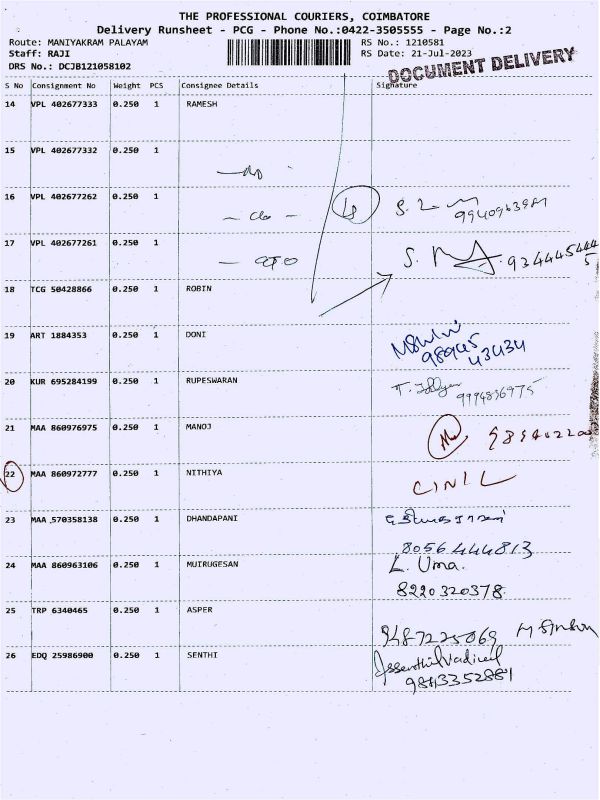 THE PROFESSIONAL COURIERS, COIMBATORE
Delivery Runsheet - PCG - Phone No.:0422-3505555 - Page No.:2
Route: MANIYAKRAM PALAYAM RS No.: 1210581
Staff: RAJI RS Date: 21-Jul-2023
DRS No.: DCJB121058102
DOCUMENT DELIVERY
S No Consignment No Weight PCS Consignee Details Signature
14 VPL 402677333 0.250 1 RAMESH
15 VPL 402677332 0.250 1
16 VPL 402677262 0.250 1 - do -
9940963981
17 VPL 402677261 0.250 1
S.
18 TCG 50428866 0.250 1 ROBIN
19 ART 1884353 0.250 1 DONI
98945
43434
20 KUR 695284199 0.250 1 RUPESWARAN
9994836975
21 MAA 860976975 0.250 1 MANOJ
22 MAA 860972777 0.250 1 NITHIYA
23 MAA 570358138 0.250 1 DHANDAPANI
8056444813
24 MAA 860963106 0.250 1 MUIRUGESAN L. Uma.
8220320378.
25 TRP 6340465 0.250 1 ASPER
9487225069
26 EDQ 25986900 0.250 1 SENTHI
9843352881